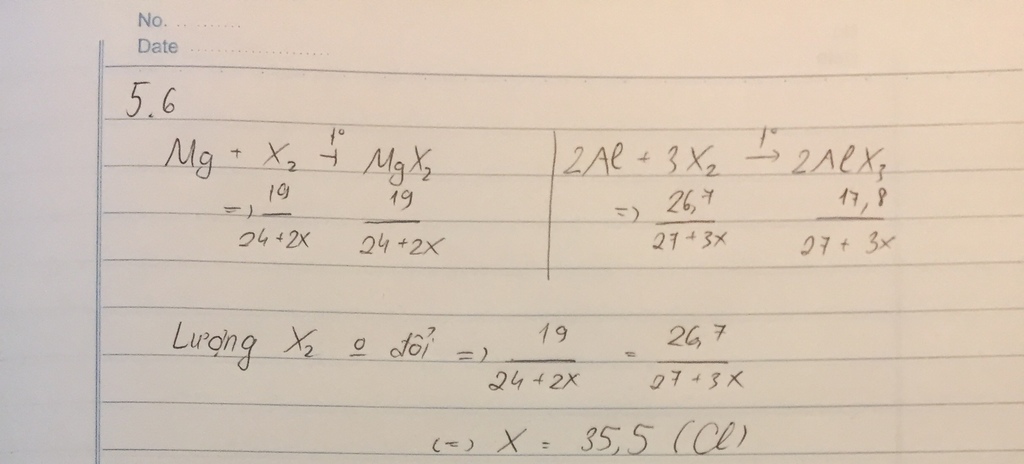 No. ............
Date ........................
5.6
Mg + X₂ →(t°) MgX₂
=> 19/(24+2X) 19/(24+2X)
2Al + 3X₂ →(t°) 2AlX₃
=> 26,7/(27+3X) 17,8/(27+3X)
Lượng X₂ o đổi => 19/(24+2X) = 26,7/(27+3X)
(=) X = 35,5 (Cl)